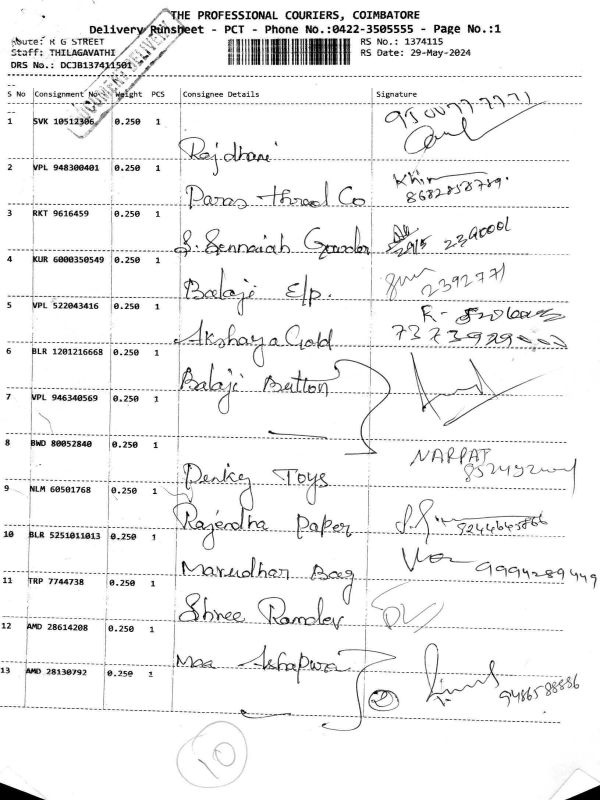 THE PROFESSIONAL COURIERS, COIMBATORE
Delivery Runsheet - PCT - Phone No.:0422-3505555 - Page No.:1
Route: R G STREET RS No.: 1374115
Staff: THILAGAVATHI RS Date: 29-May-2024
DRS No.: DCJB137411501
S No Consignment No Weight PCS Consignee Details Signature
1 SVK 10512306 0.250 1 Rajdhani
2 VPL 948300401 0.250 1 Paras thread Co
3 RKT 9616459 0.250 1 S. Sennaiah Gowder
4 KUR 6000350549 0.250 1 Balaji E/p. 2392771
5 VPL 522043416 0.250 1 Akshaya Gold
6 BLR 1201216668 0.250 1 Balaji Button
7 VPL 946340569 0.250 1
8 BWD 80052840 0.250 1 Penky Toys NARPAT
9 NLM 60501768 0.250 1 Rajendha Paper
10 BLR 5251011013 0.250 1 Marudhar Bag 9994289449
11 TRP 7744738 0.250 1 Shree Ramdev
12 AMD 28614208 0.250 1 Maa Ashapura
13 AMD 28130792 0.250 1 2 9486588886
10